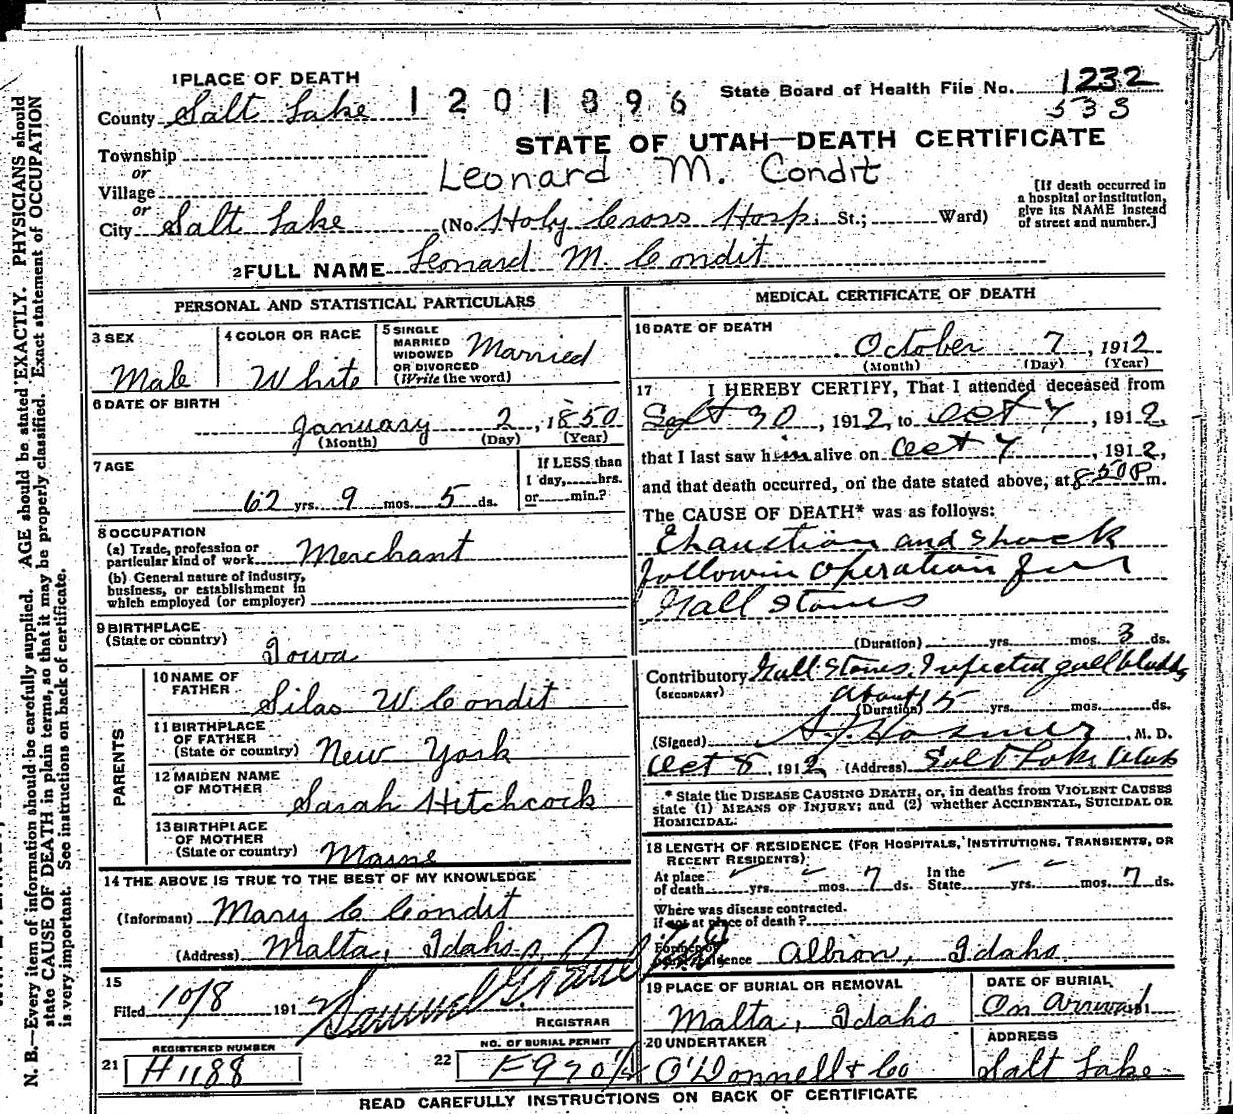 1 PLACE OF DEATH
County Salt Lake
1201896
State Board of Health File No. 1232
533
STATE OF UTAH—DEATH CERTIFICATE
Township
or
Village
Leonard M. Condit
or
City Salt Lake (No. Holy Cross Hosp. St.; Ward)
[If death occurred in
a hospital or institution,
give its NAME instead
of street and number.]
2 FULL NAME Leonard M. Condit
PERSONAL AND STATISTICAL PARTICULARS
3 SEX
Male
4 COLOR OR RACE
White
5 SINGLE
MARRIED
WIDOWED
OR DIVORCED
(Write the word)
Married
6 DATE OF BIRTH
January 2, 1850
(Month) (Day) (Year)
7 AGE
62 yrs. 9 mos. 5 ds.
If LESS than
1 day, hrs.
or min.?
8 OCCUPATION
(a) Trade, profession or
particular kind of work Merchant
(b) General nature of industry,
business, or establishment in
which employed (or employer)
9 BIRTHPLACE
(State or country)
Iowa
PARENTS
10 NAME OF
FATHER
Silas W. Condit
11 BIRTHPLACE
OF FATHER
(State or country) New York
12 MAIDEN NAME
OF MOTHER
Sarah Hitchcock
13 BIRTHPLACE
OF MOTHER
(State or country) Maine
14 THE ABOVE IS TRUE TO THE BEST OF MY KNOWLEDGE
(Informant) Mary C Condit
(Address) Malta, Idaho
15
Filed 10/8 1912
REGISTRAR
REGISTERED NUMBER
21 H 1188
NO. OF BURIAL PERMIT
22
MEDICAL CERTIFICATE OF DEATH
16 DATE OF DEATH
October 7, 1912
(Month) (Day) (Year)
17 I HEREBY CERTIFY, That I attended deceased from
Sept 30, 1912, to Oct 7, 1912,
that I last saw him alive on Oct 7, 1912,
and that death occurred, on the date stated above, at 8 50 P m.
The CAUSE OF DEATH* was as follows:
Exhaustion and shock
followin operation for
Gall stones
(Duration) yrs. mos. 3 ds.
Contributory Gall Stones. Infected gall bladder
(SECONDARY)
about
(Duration) 15 yrs. mos. ds.
(Signed) Hosmer, M. D.
Oct 8, 1912 (Address) Salt Lake Utah
* State the DISEASE CAUSING DEATH, or, in deaths from VIOLENT CAUSES
state (1) MEANS OF INJURY; and (2) whether ACCIDENTAL, SUICIDAL OR
HOMICIDAL.
18 LENGTH OF RESIDENCE (FOR HOSPITALS, INSTITUTIONS, TRANSIENTS, OR
RECENT RESIDENTS)
At place
of death yrs. mos. 7 ds.
In the
State yrs. mos. 7 ds.
Where was disease contracted.
If not at place of death?
Former or
usual residence Albion, Idaho
19 PLACE OF BURIAL OR REMOVAL
Malta, Idaho
DATE OF BURIAL
On arrival
20 UNDERTAKER
O'Donnell & Co
ADDRESS
Salt Lake
READ CAREFULLY INSTRUCTIONS ON BACK OF CERTIFICATE
N. B.—Every item of information should be carefully supplied. AGE should be stated EXACTLY. PHYSICIANS should
state CAUSE OF DEATH in plain terms, so that it may be properly classified. Exact statement of OCCUPATION
is very important. See instructions on back of certificate.